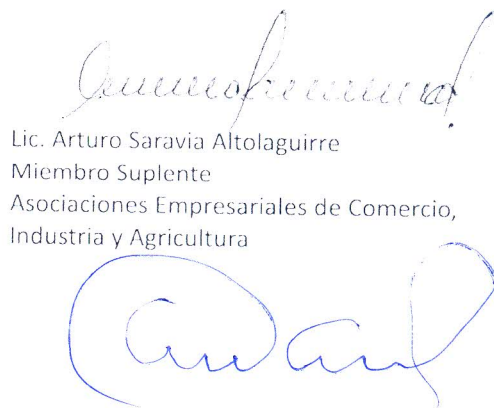 Lic. Arturo Saravia Altolaguirre
Miembro Suplente
Asociaciones Empresariales de Comercio,
Industria y Agricultura